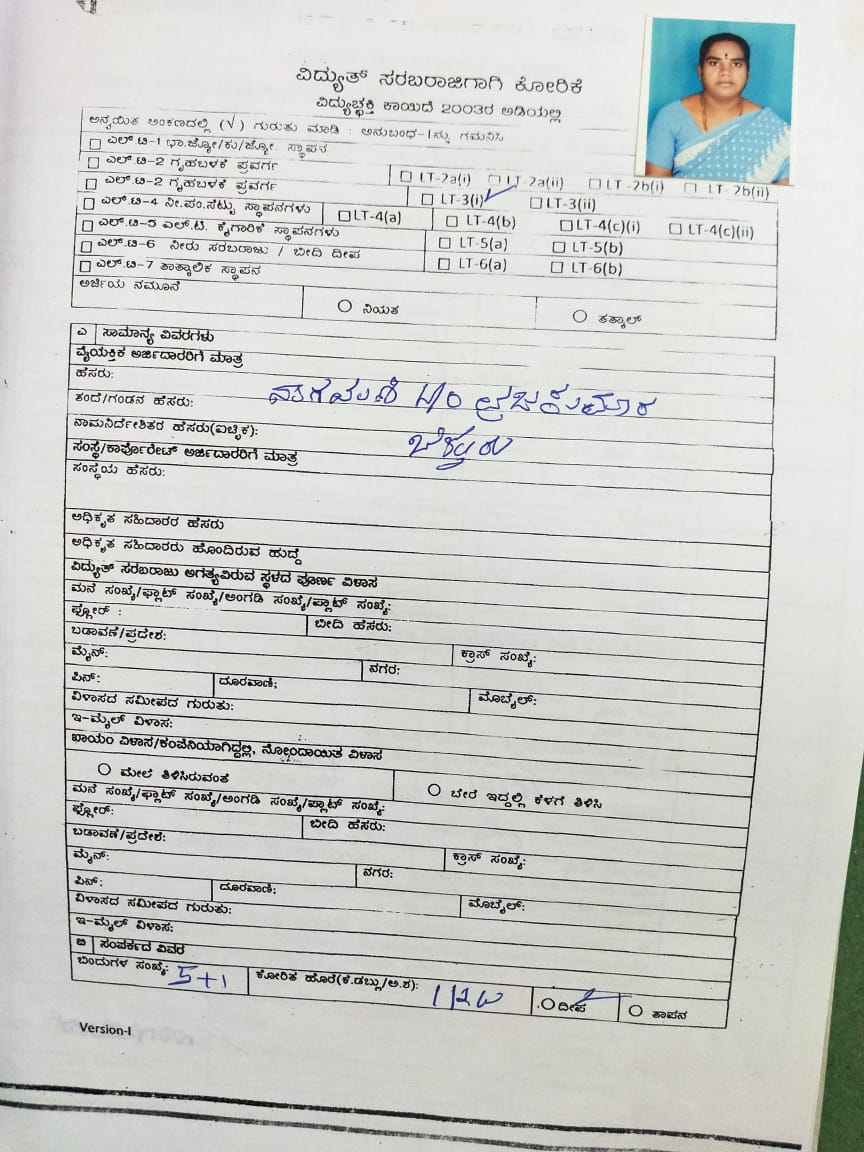 ವಿದ್ಯುತ್ ಸರಬರಾಜಿಗಾಗಿ ಕೋರಿಕೆ
ವಿದ್ಯುಚ್ಛಕ್ತಿ ಕಾಯಿದೆ 2003ರ ಅಡಿಯಲ್ಲಿ
ಅನ್ವಯಿತ ಅಂಕಣದಲ್ಲಿ (√) ಗುರುತು ಮಾಡಿ : ಅನುಬಂಧ-Iನ್ನು ಗಮನಿಸಿ
☐ ಎಲ್.ಟಿ-1 ಭಾ.ಜ್ಯೋ/ಕು/ಜ್ಯೋ. ಸ್ಥಾಪನ
☐ ಎಲ್.ಟಿ-2 ಗೃಹಬಳಕೆ ಪ್ರವರ್ಗ ☐ LT-2a(i) ☐ LT-2a(ii) ☐ LT-2b(i) ☐ LT-2b(ii)
☐ ಎಲ್.ಟಿ-2 ಗೃಹಬಳಕೆ ಪ್ರವರ್ಗ ☐ LT-3(i) ✓ ☐ LT-3(ii)
☐ ಎಲ್.ಟಿ-4 ನೀ.ಪಂ.ಸೆಟ್ಟು ಸ್ಥಾಪನಗಳು ☐ LT-4(a) ☐ LT-4(b) ☐ LT-4(c)(i) ☐ LT-4(c)(ii)
☐ ಎಲ್.ಟಿ-5 ಎಲ್.ಟಿ. ಕೈಗಾರಿಕೆ ಸ್ಥಾಪನಗಳು ☐ LT-5(a) ☐ LT-5(b)
☐ ಎಲ್.ಟಿ-6 ನೀರು ಸರಬರಾಜು / ಬೀದಿ ದೀಪ ☐ LT-6(a) ☐ LT-6(b)
☐ ಎಲ್.ಟಿ-7 ತಾತ್ಕಾಲಿಕ ಸ್ಥಾಪನ
ಅರ್ಜಿಯ ನಮೂನೆ ○ ನಿಯತ ○ ತತ್ಕಾಲ್
ಎ ಸಾಮಾನ್ಯ ವಿವರಗಳು
ವೈಯಕ್ತಿಕ ಅರ್ಜಿದಾರರಿಗೆ ಮಾತ್ರ
ಹೆಸರು:
ತಂದೆ/ಗಂಡನ ಹೆಸರು: ನಾಗಮಣಿ
ನಾಮನಿರ್ದೇಶಿತರ ಹೆಸರು(ಐಚ್ಛಿಕ):
ಸಂಸ್ಥೆ/ಕಾರ್ಪೊರೇಟ್ ಅರ್ಜಿದಾರರಿಗೆ ಮಾತ್ರ
ಸಂಸ್ಥೆಯ ಹೆಸರು:
ಅಧಿಕೃತ ಸಹಿದಾರರ ಹೆಸರು
ಅಧಿಕೃತ ಸಹಿದಾರರು ಹೊಂದಿರುವ ಹುದ್ದೆ
ವಿದ್ಯುತ್ ಸರಬರಾಜು ಅಗತ್ಯವಿರುವ ಸ್ಥಳದ ಪೂರ್ಣ ವಿಳಾಸ
ಮನೆ ಸಂಖ್ಯೆ/ಫ್ಲಾಟ್ ಸಂಖ್ಯೆ/ಅಂಗಡಿ ಸಂಖ್ಯೆ/ಪ್ಲಾಟ್ ಸಂಖ್ಯೆ:
ಫ್ಲೋರ್ : ಬೀದಿ ಹೆಸರು:
ಬಡಾವಣೆ/ಪ್ರದೇಶ: ಕ್ರಾಸ್ ಸಂಖ್ಯೆ:
ಮೈನ್: ನಗರ:
ಪಿನ್: ದೂರವಾಣಿ; ಮೊಬೈಲ್:
ವಿಳಾಸದ ಸಮೀಪದ ಗುರುತು:
ಇ-ಮೈಲ್ ವಿಳಾಸ:
ಖಾಯಂ ವಿಳಾಸ/ಕಂಪೆನಿಯಾಗಿದ್ದಲ್ಲಿ, ನೋಂದಾಯಿತ ವಿಳಾಸ
○ ಮೇಲೆ ತಿಳಿಸಿರುವಂತೆ ○ ಬೇರೆ ಇದ್ದಲ್ಲಿ ಕೆಳಗೆ ತಿಳಿಸಿ
ಮನೆ ಸಂಖ್ಯೆ/ಫ್ಲಾಟ್ ಸಂಖ್ಯೆ/ಅಂಗಡಿ ಸಂಖ್ಯೆ/ಪ್ಲಾಟ್ ಸಂಖ್ಯೆ:
ಫ್ಲೋರ್: ಬೀದಿ ಹೆಸರು:
ಬಡಾವಣೆ/ಪ್ರದೇಶ: ಕ್ರಾಸ್ ಸಂಖ್ಯೆ:
ಮೈನ್: ನಗರ:
ಪಿನ್: ದೂರವಾಣಿ; ಮೊಬೈಲ್:
ವಿಳಾಸದ ಸಮೀಪದ ಗುರುತು:
ಇ-ಮೈಲ್ ವಿಳಾಸ:
ಬಿ ಸಂಪರ್ಕದ ವಿವರ
ಬಿಂದುಗಳ ಸಂಖ್ಯೆ: 5+1 ಕೋರಿತ ಹೊರೆ(ಕೆ.ಡಬ್ಲು/ಅ.ಶ): ○ ದೀಪ ○ ತಾಪನ
Version-I